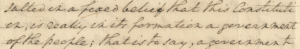 settled in a fixed belief that this Constituti-
on, is really in its formation a government
of the people; that is to say, a government